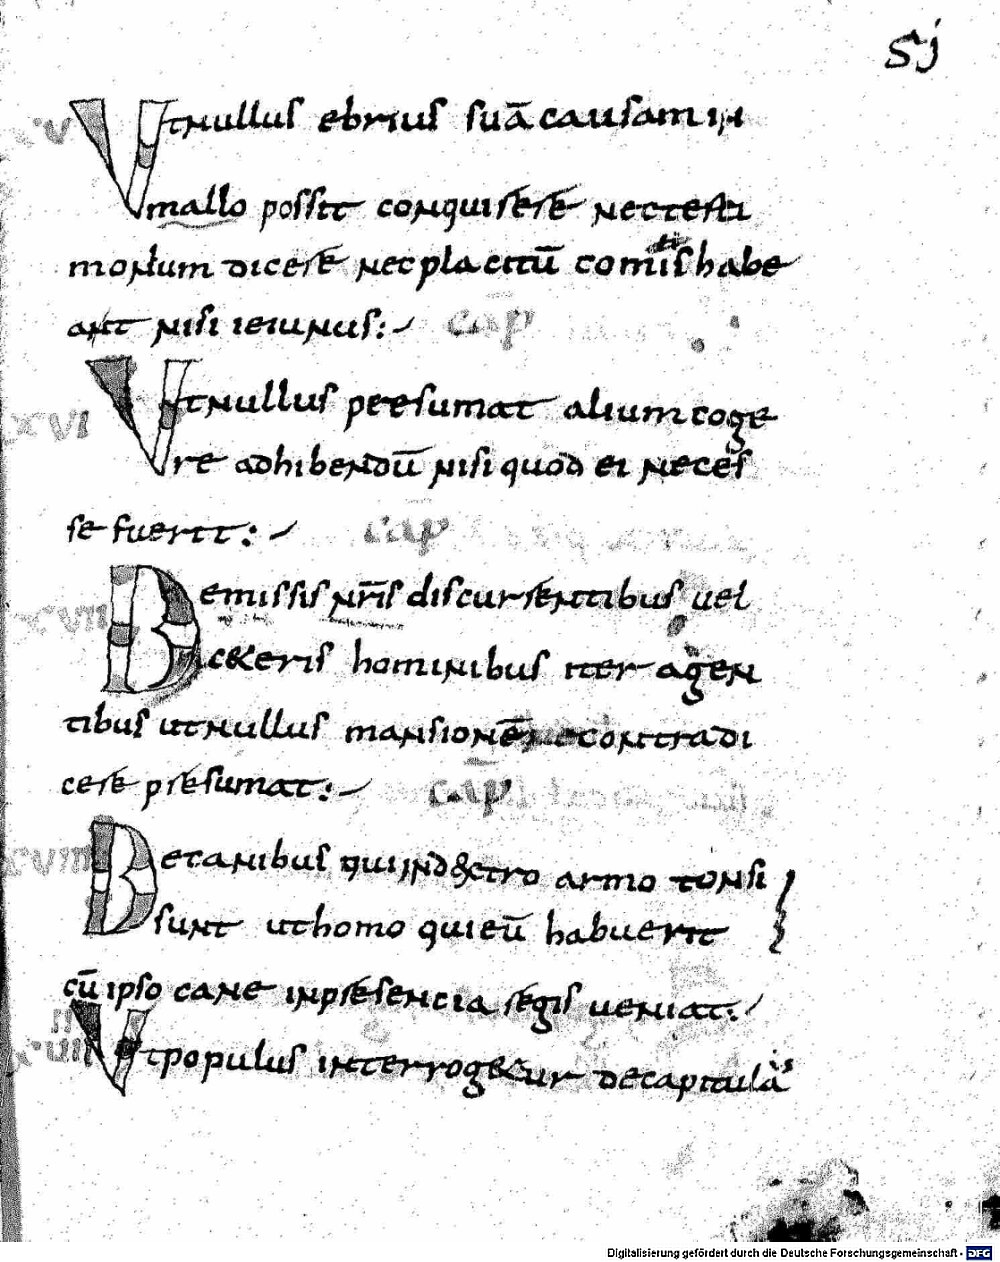 51
XV
Utnullus ebrius suā causam in
mallo possit conquirere nec testi
monium dicere nec placitū comis habe
ti
ant nisi ieiunus:
cap
XVI
Utnullus presumat alium coge
re adhibendū nisi quod ei neces
se fuerit:
cap
XVII
Demissis nr̄is discurrentibus uel
c&eris hominibus iter agen
tibus utnullus mansionē contradi
cere presumat:
cap
XVIII
Decanibus qui ind&ctro armo tonsi
sunt uthomo quieū habuerit
cū ipso cane inpresencia regis ueniat:
XVIIII
Utpopulus interrog&ur decapitulais
Digitalisierung gefördert durch die Deutsche Forschungsgemeinschaft - DFG